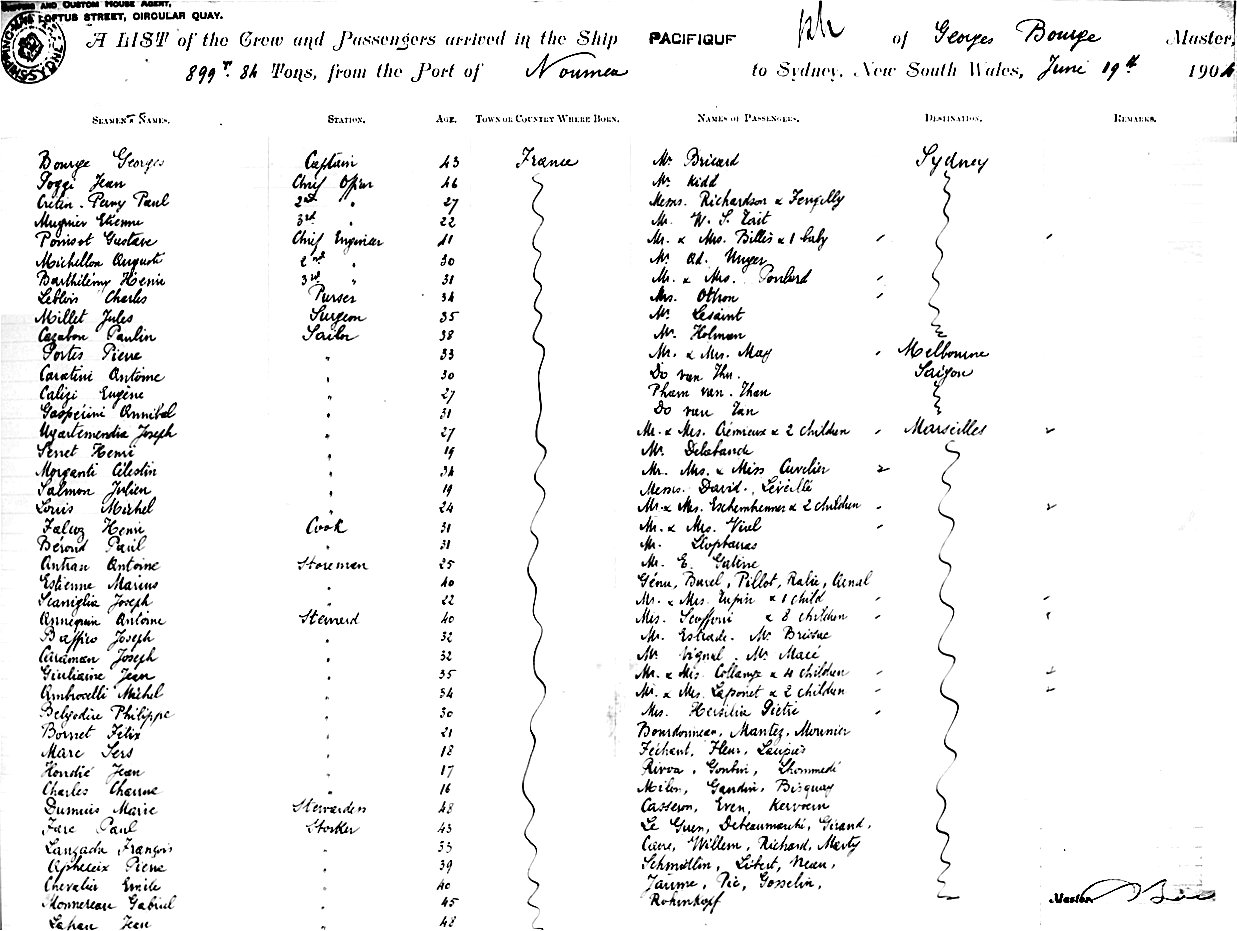 SHIPPING AND CUSTOM HOUSE AGENT,
LOFTUS STREET, CIRCULAR QUAY.
A LIST of the Crew and Passengers arrived in the Ship PACIFIQUE of Georges Bourge Master,
899 Tons, from the Port of Noumea to Sydney, New South Wales, June 19th 1904
SEAMEN'S NAMES. STATION. AGE. TOWN OR COUNTRY WHERE BORN. NAMES OF PASSENGERS. DESTINATION. REMARKS.
Bourge Georges Captain 43 France Mr Bricard Sydney
Poggi Jean Chief Officer 46 " Mr. Kidd "
Cretin-Perny Paul 2nd " 27 Messrs. Richardson & Fengilly
Mugnier Etienne 3rd " 22 Mr. W. S. Tait
Poinsot Gustave Chief Engineer 41 Mr. & Mrs. Billès & 1 baby
Michellon Auguste 2nd " 30 Mr Ad. Unger
Barthélémy Henri 3rd " 31 Mr. & Mrs.
Leblois Charles Purser 34 Mrs. Othon
Millet Jules Surgeon 35 Mr. Lesaint
Cazabon Paulin Sailor 38 Mr. Holman
Portes Pierre " 33 Mr. & Mrs. May Melbourne
Caratini Antoine " 30 Do van Thu. Saigon
Calizi Eugène " 27 Pham van Than
Gasperini Annibal " 31 Do van Tan
Ugartemendia Joseph " 27 Mr. & Mrs. Crémieux & 2 children Marseilles
Serret Henri " 19 Mr. Delabaude
Morganti Célestin " 34 Mr. Mrs. & Miss Cuvelier
Salmon Julien " 19 Messrs. David, Léveillé
Louis Michel " 24 Mr. & Mrs. & 2 children
Henri Cook 31 Mr. & Mrs. Virel
Béroud Paul " 31 Mr.
Antran Antoine Storeman 25 Mr. E. Gatine
Estienne Marius " 40 Génu, Burel, Pillot, Rabie, Arnal
Scaniglia Joseph " 22 Mr. & Mrs. Lupin & 1 child
Annequin Antoine Steward 40 Mrs. Scoffoni & 8 children
Baffico Joseph " 32 Mr. Estrade. Mr Brisue
Caraman Joseph " 32 Mr. Vignal. Mr. Macé
Giuliaine Jean " 35 Mr. & Mrs. & 4 children
Ambroselli Michel " 34 Mr. & Mrs. Laponet & 2 children
Belgodire Philippe " 30 Mrs. Hersilia Piétre
Bornet Félix " 21 Bourdonneau, Mantez, Mounier
Marc Sers " 18 Féchant, Fleur,
Hondié Jean " 17 Rivoa, Gontin, Lhommedé
Charles Charme " 16 Milon, Gaudin, Bizquay
Dumuis Marie Stewardess 48 Casseron, Even, Kervoern
Fare Paul Stocker 43 Le Guen, Debeaumarché, Girand,
Langada François " 33 Cave, Willem, Richard, Marty
Pierre " 39 Schmidtlin, Libert, Neau,
Chevalier Emile " 40 Jaume, Pic, Gosselin,
Monnereau Gabriel " 45 Rohinkopf
Master
Lahan Jean " 48